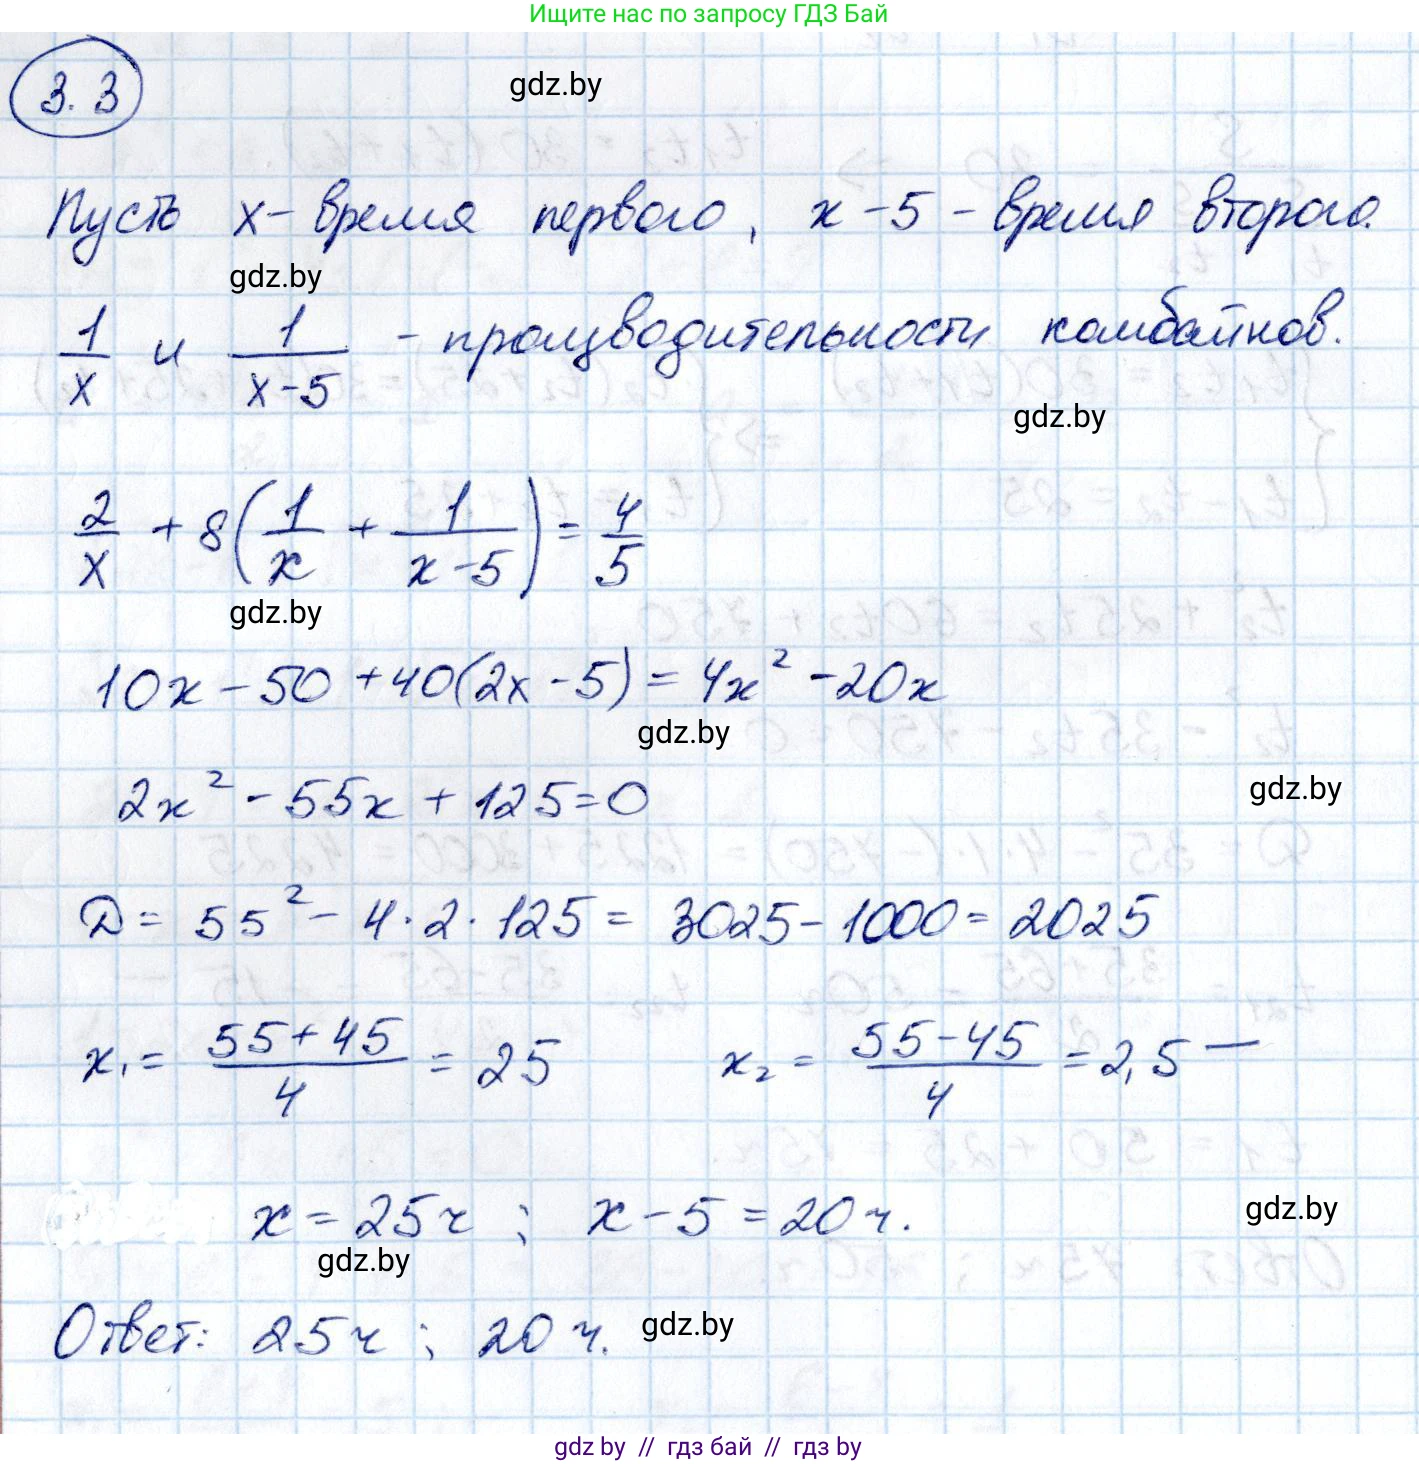 Ищите нас по запросу ГДЗ Бай
3.3
gdz.by
Пусть x – время первого, x – 5 – время второго.
gdz.by
1/x и 1/(x–5) – производительности комбайнов.
gdz.by
2/x + 8(1/x + 1/(x–5)) = 4/5
gdz.by
10x – 50 + 40(2x – 5) = 4x² – 20x
gdz.by
2x² – 55x + 125 = 0
gdz.by
D = 55² – 4·2·125 = 3025 – 1000 = 2025
x₁ = (55+45)/4 = 25 x₂ = (55–45)/4 = 2,5 —
x = 25 ч ; x – 5 = 20 ч.
gdz.by
gdz.by
Ответ: 25 ч ; 20 ч.
gdz.by
gdz by // гдз бай // гдз by